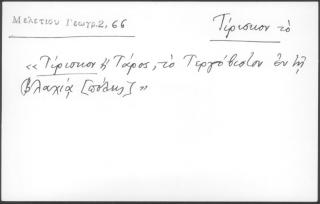 Μελετίου Γεωγρ. 2, 66
Τίρισκον τὸ
«Τίρισκον ἢ Τάρος, τὸ Τεργόβιστον ἐν τῇ
Βλαχίᾳ [πόλις]»